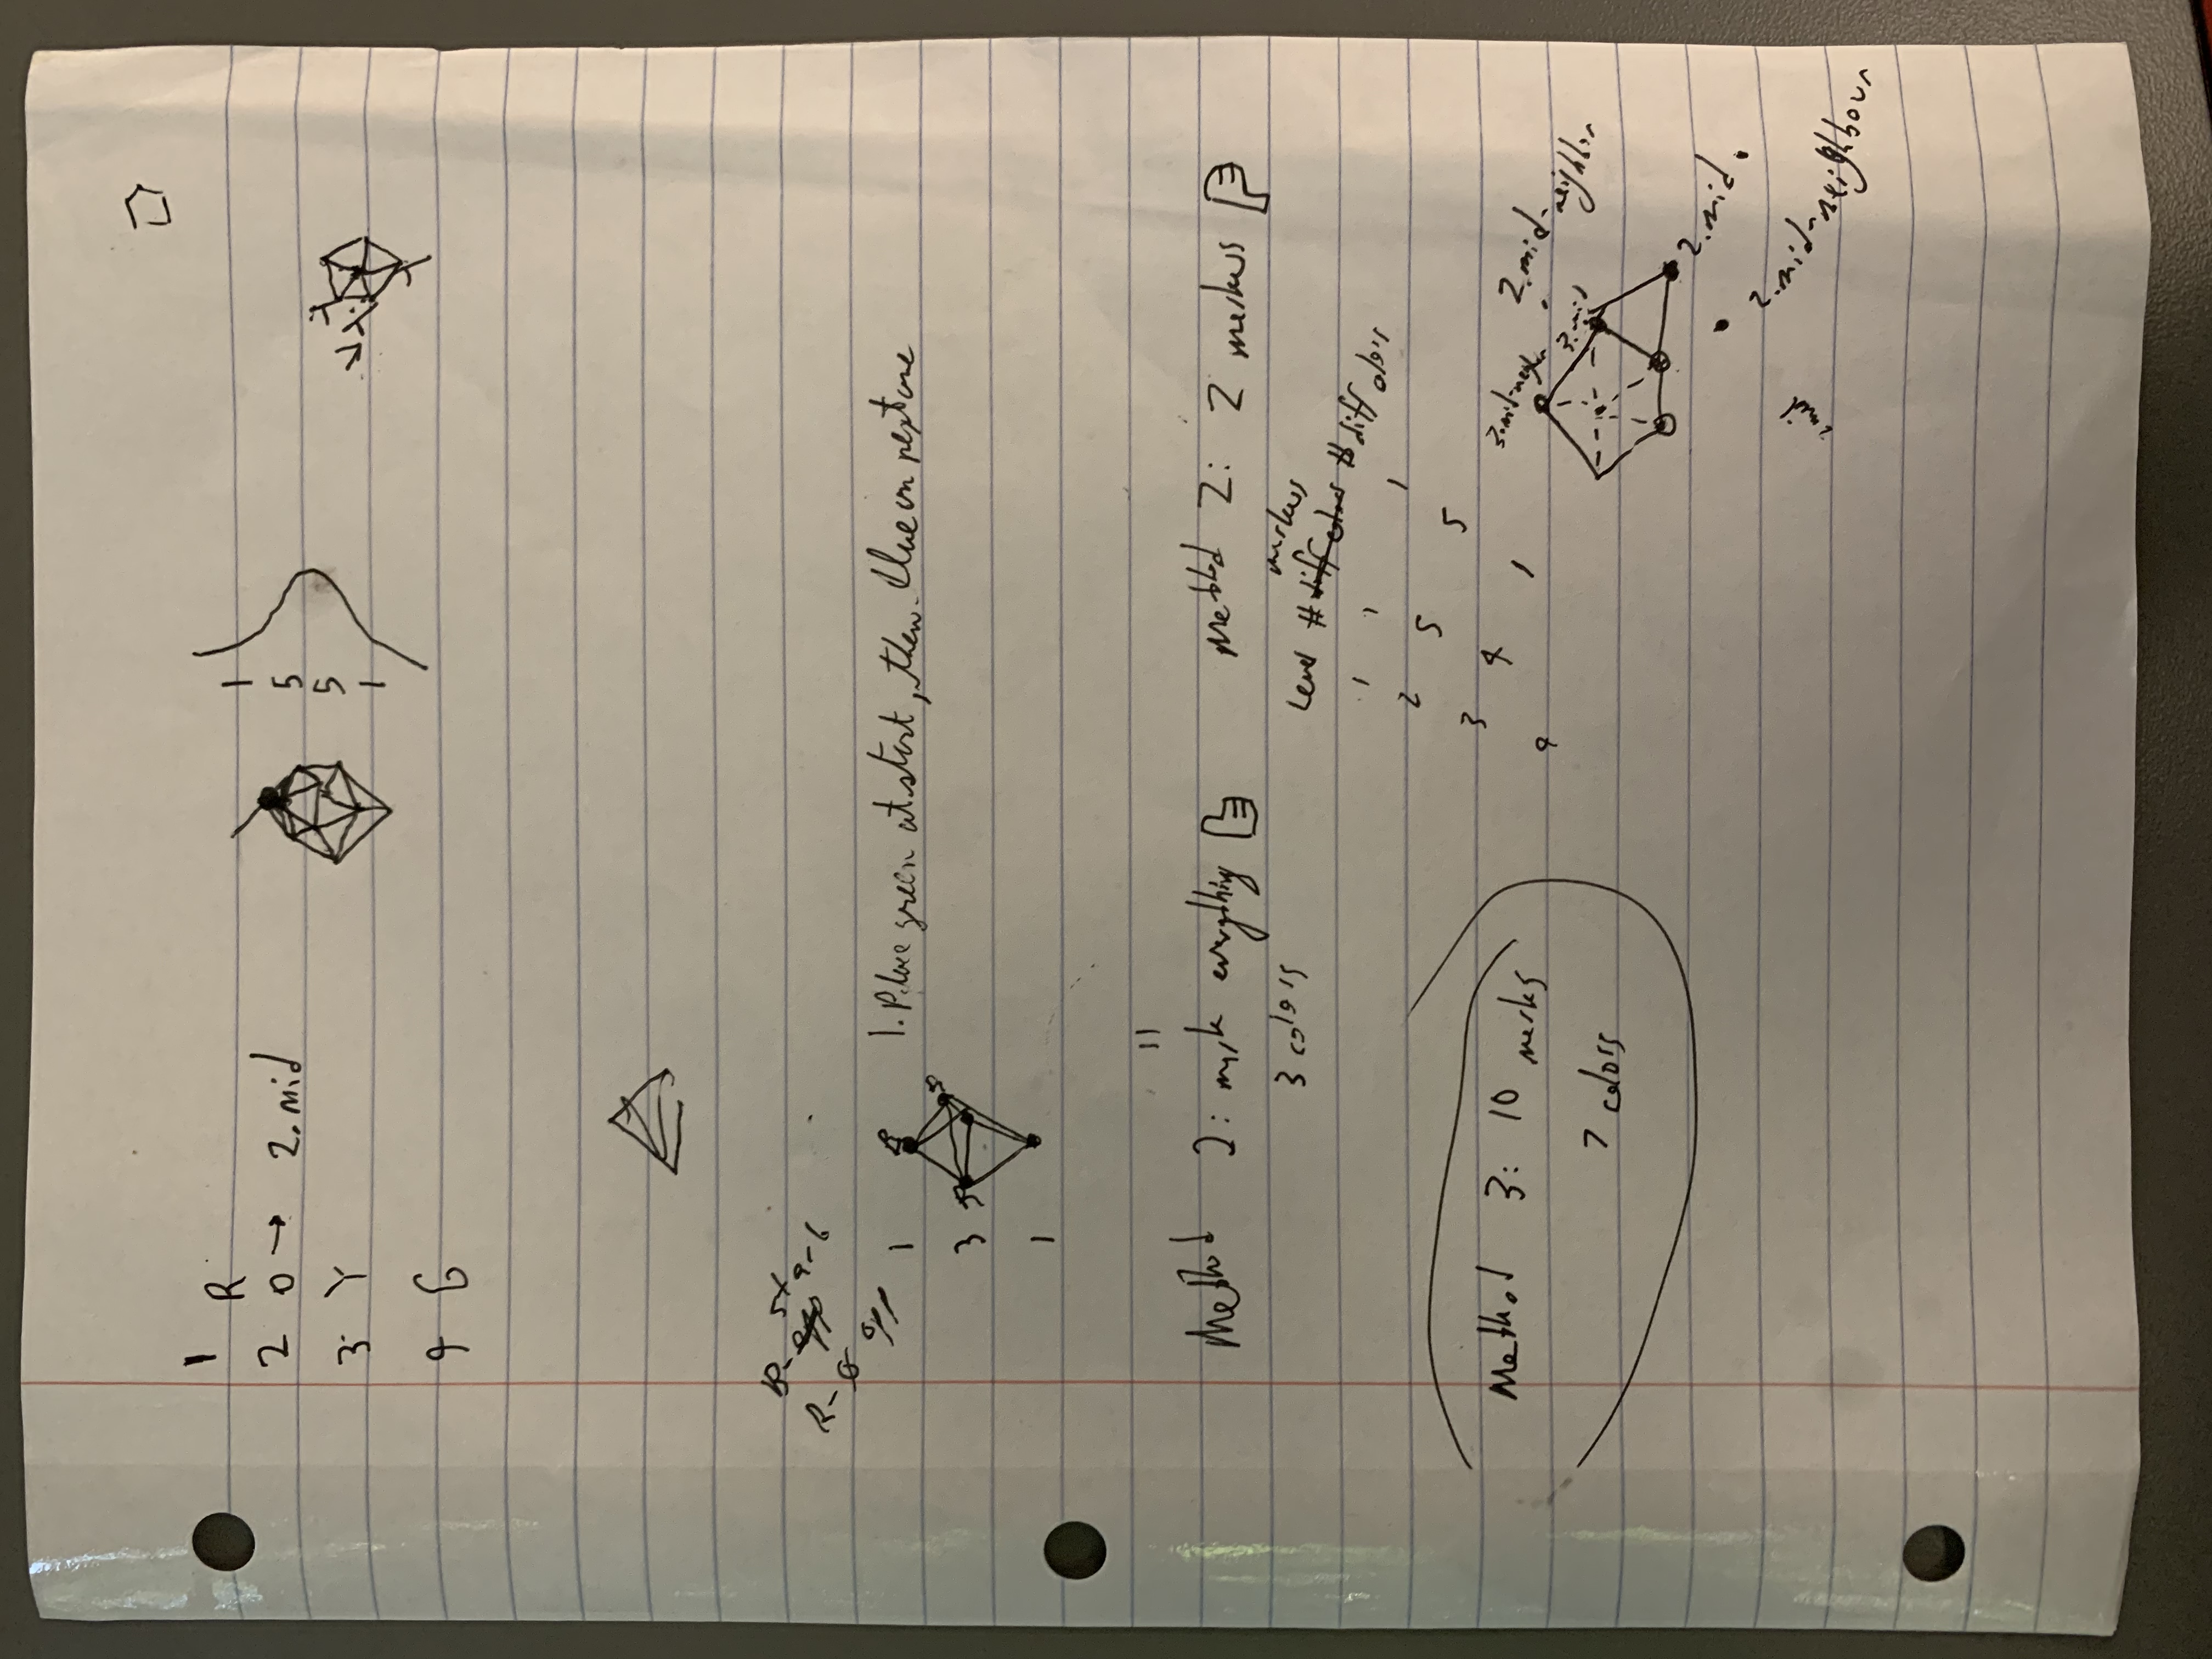 1
R
2 O → 2.mid
3 Y
4 G
1
5
5
1
R-
R-
opp
1
3
1
1. Place green at start, then blue on next one
11
Method 2: mark everything
3 colors
Method 2: 2 markers
markers
Level # diff colors # diff colors
1 1 1
2 5 5
3 4 1
4
Method 3: 10 marks
7 colors
3.mid-neighbor
2.mid-neighbor
3.mid
2.mid
2.mid-neighbour